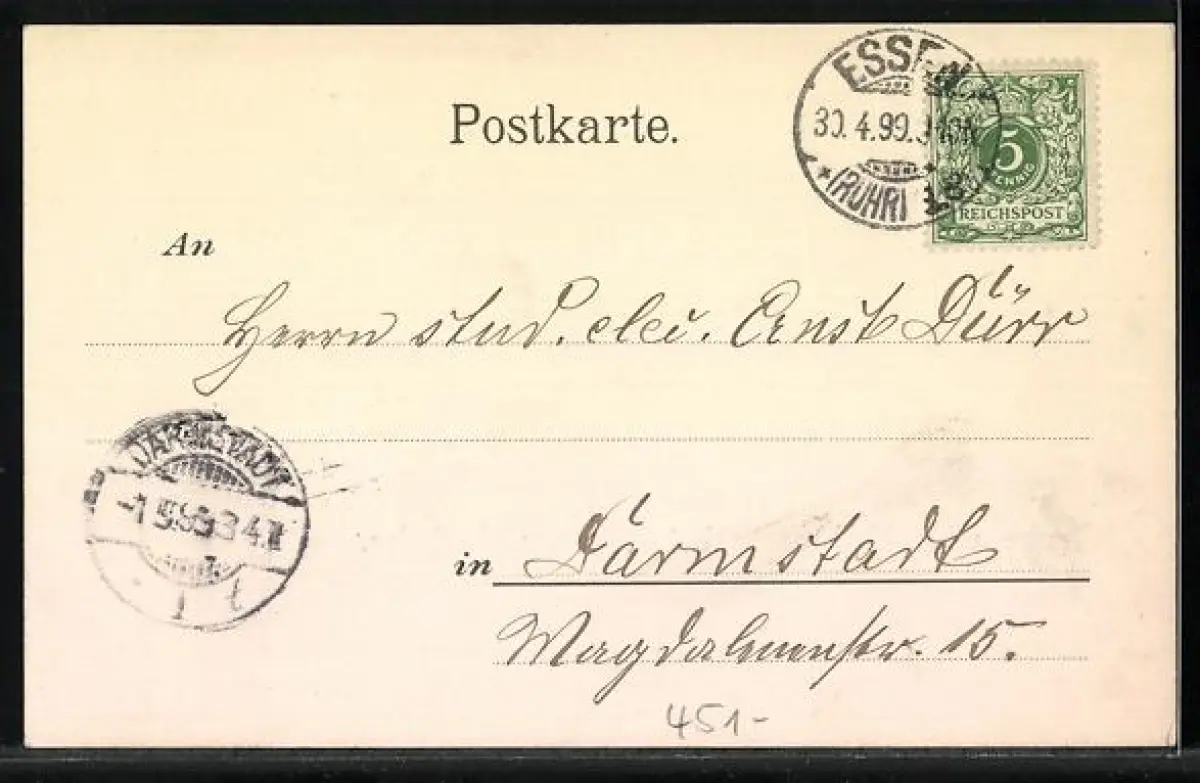 ESSEN
30.4.99.
(RUHR)
5
PFENNIG
REICHSPOST
Postkarte.
An
Herrn stud. elec. Ernst Dürr
DARMSTADT
-1 5.99 3 4.N
1
in Darmstadt
Magdalenenstr. 15.
451-